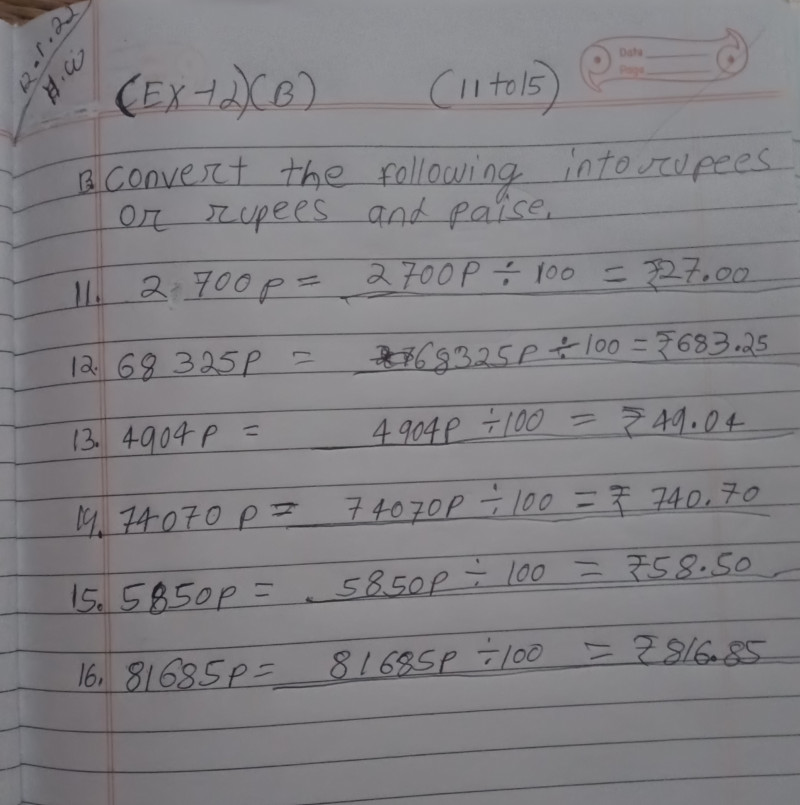 12.1.22
H.W
(Ex-12)(B) (11 to 15)
Date
Page
B convert the following into rupees
or rupees and paise.
11. 2 700p = 2700P ÷ 100 = ₹27.00
12. 68 325P = 68325P ÷ 100 = ₹683.25
13. 4904P = 4904P ÷ 100 = ₹49.04
14. 74070 P = 74070P ÷ 100 = ₹ 740.70
15. 5850P = 5850P ÷ 100 = ₹58.50
16. 81685P = 81685P ÷ 100 = ₹816.85